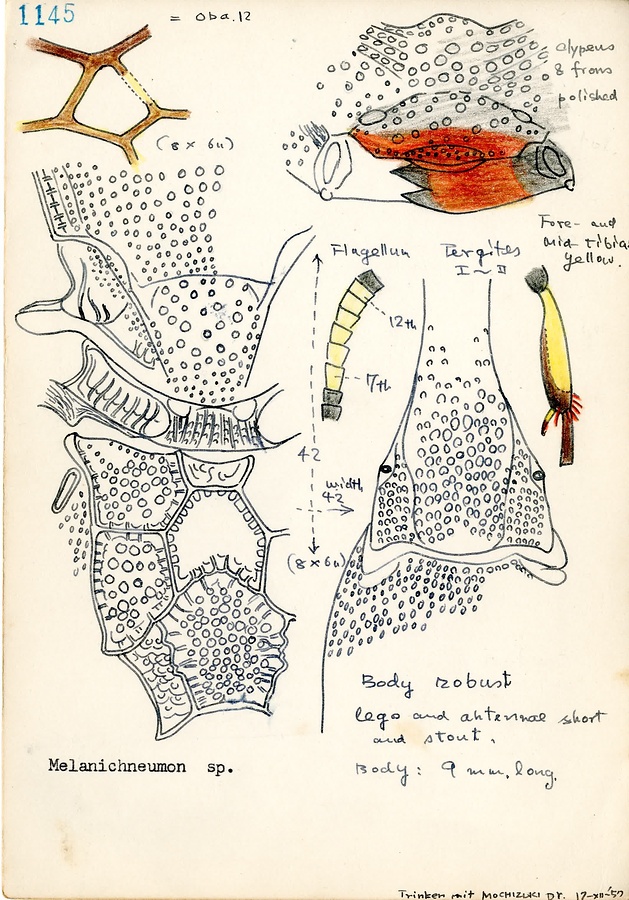 1145
= Oba.12
clypeus
& frons
polished
(8 x 6u)
Fore- and
Mid-tibia
Yellow.
Flagellum
Tergites
I ~ II
12th
7th
42
width
42
(8 x 6u)
Body robust
legs and antennae short
and stout.
Body: 9 mm, long.
Melanichneumon sp.
Trinken mit MOCHIZUKI Dr. 17-XII-'57